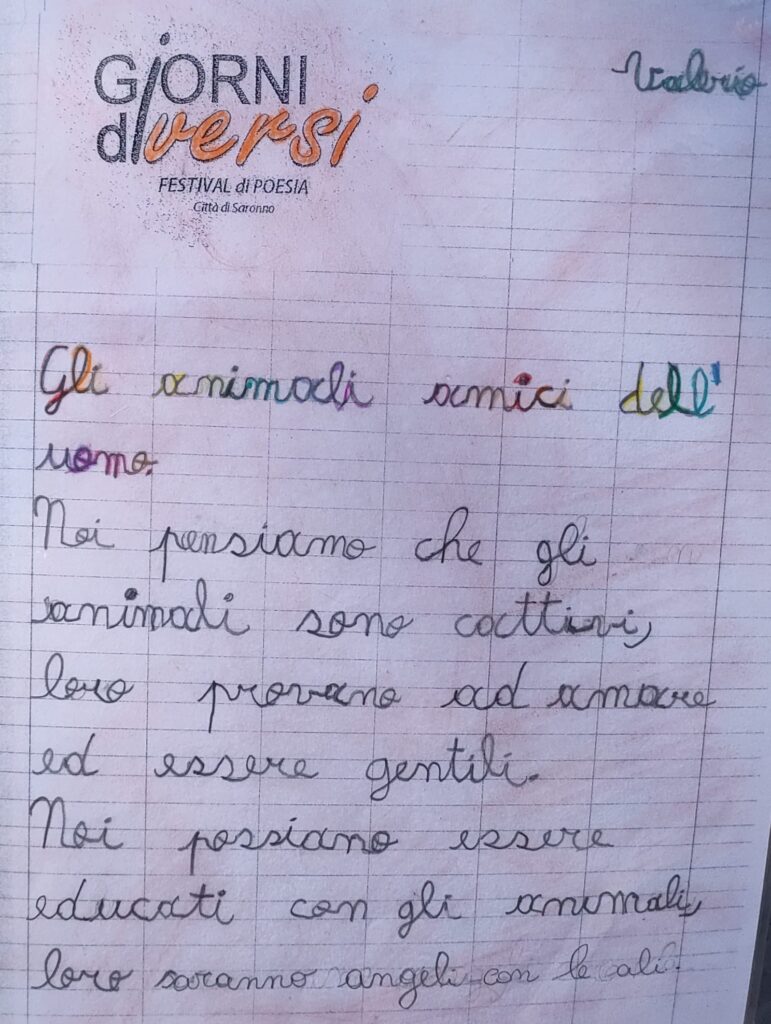 GIORNI
diversi
FESTIVAL di POESIA
Città di Saronno
Valerio
Gli animali amici dell'
uomo.
Noi pensiamo che gli
animali sono cattivi,
loro provano ad amare
ed essere gentili.
Noi possiamo essere
educati con gli animali,
loro saranno angeli con le ali.